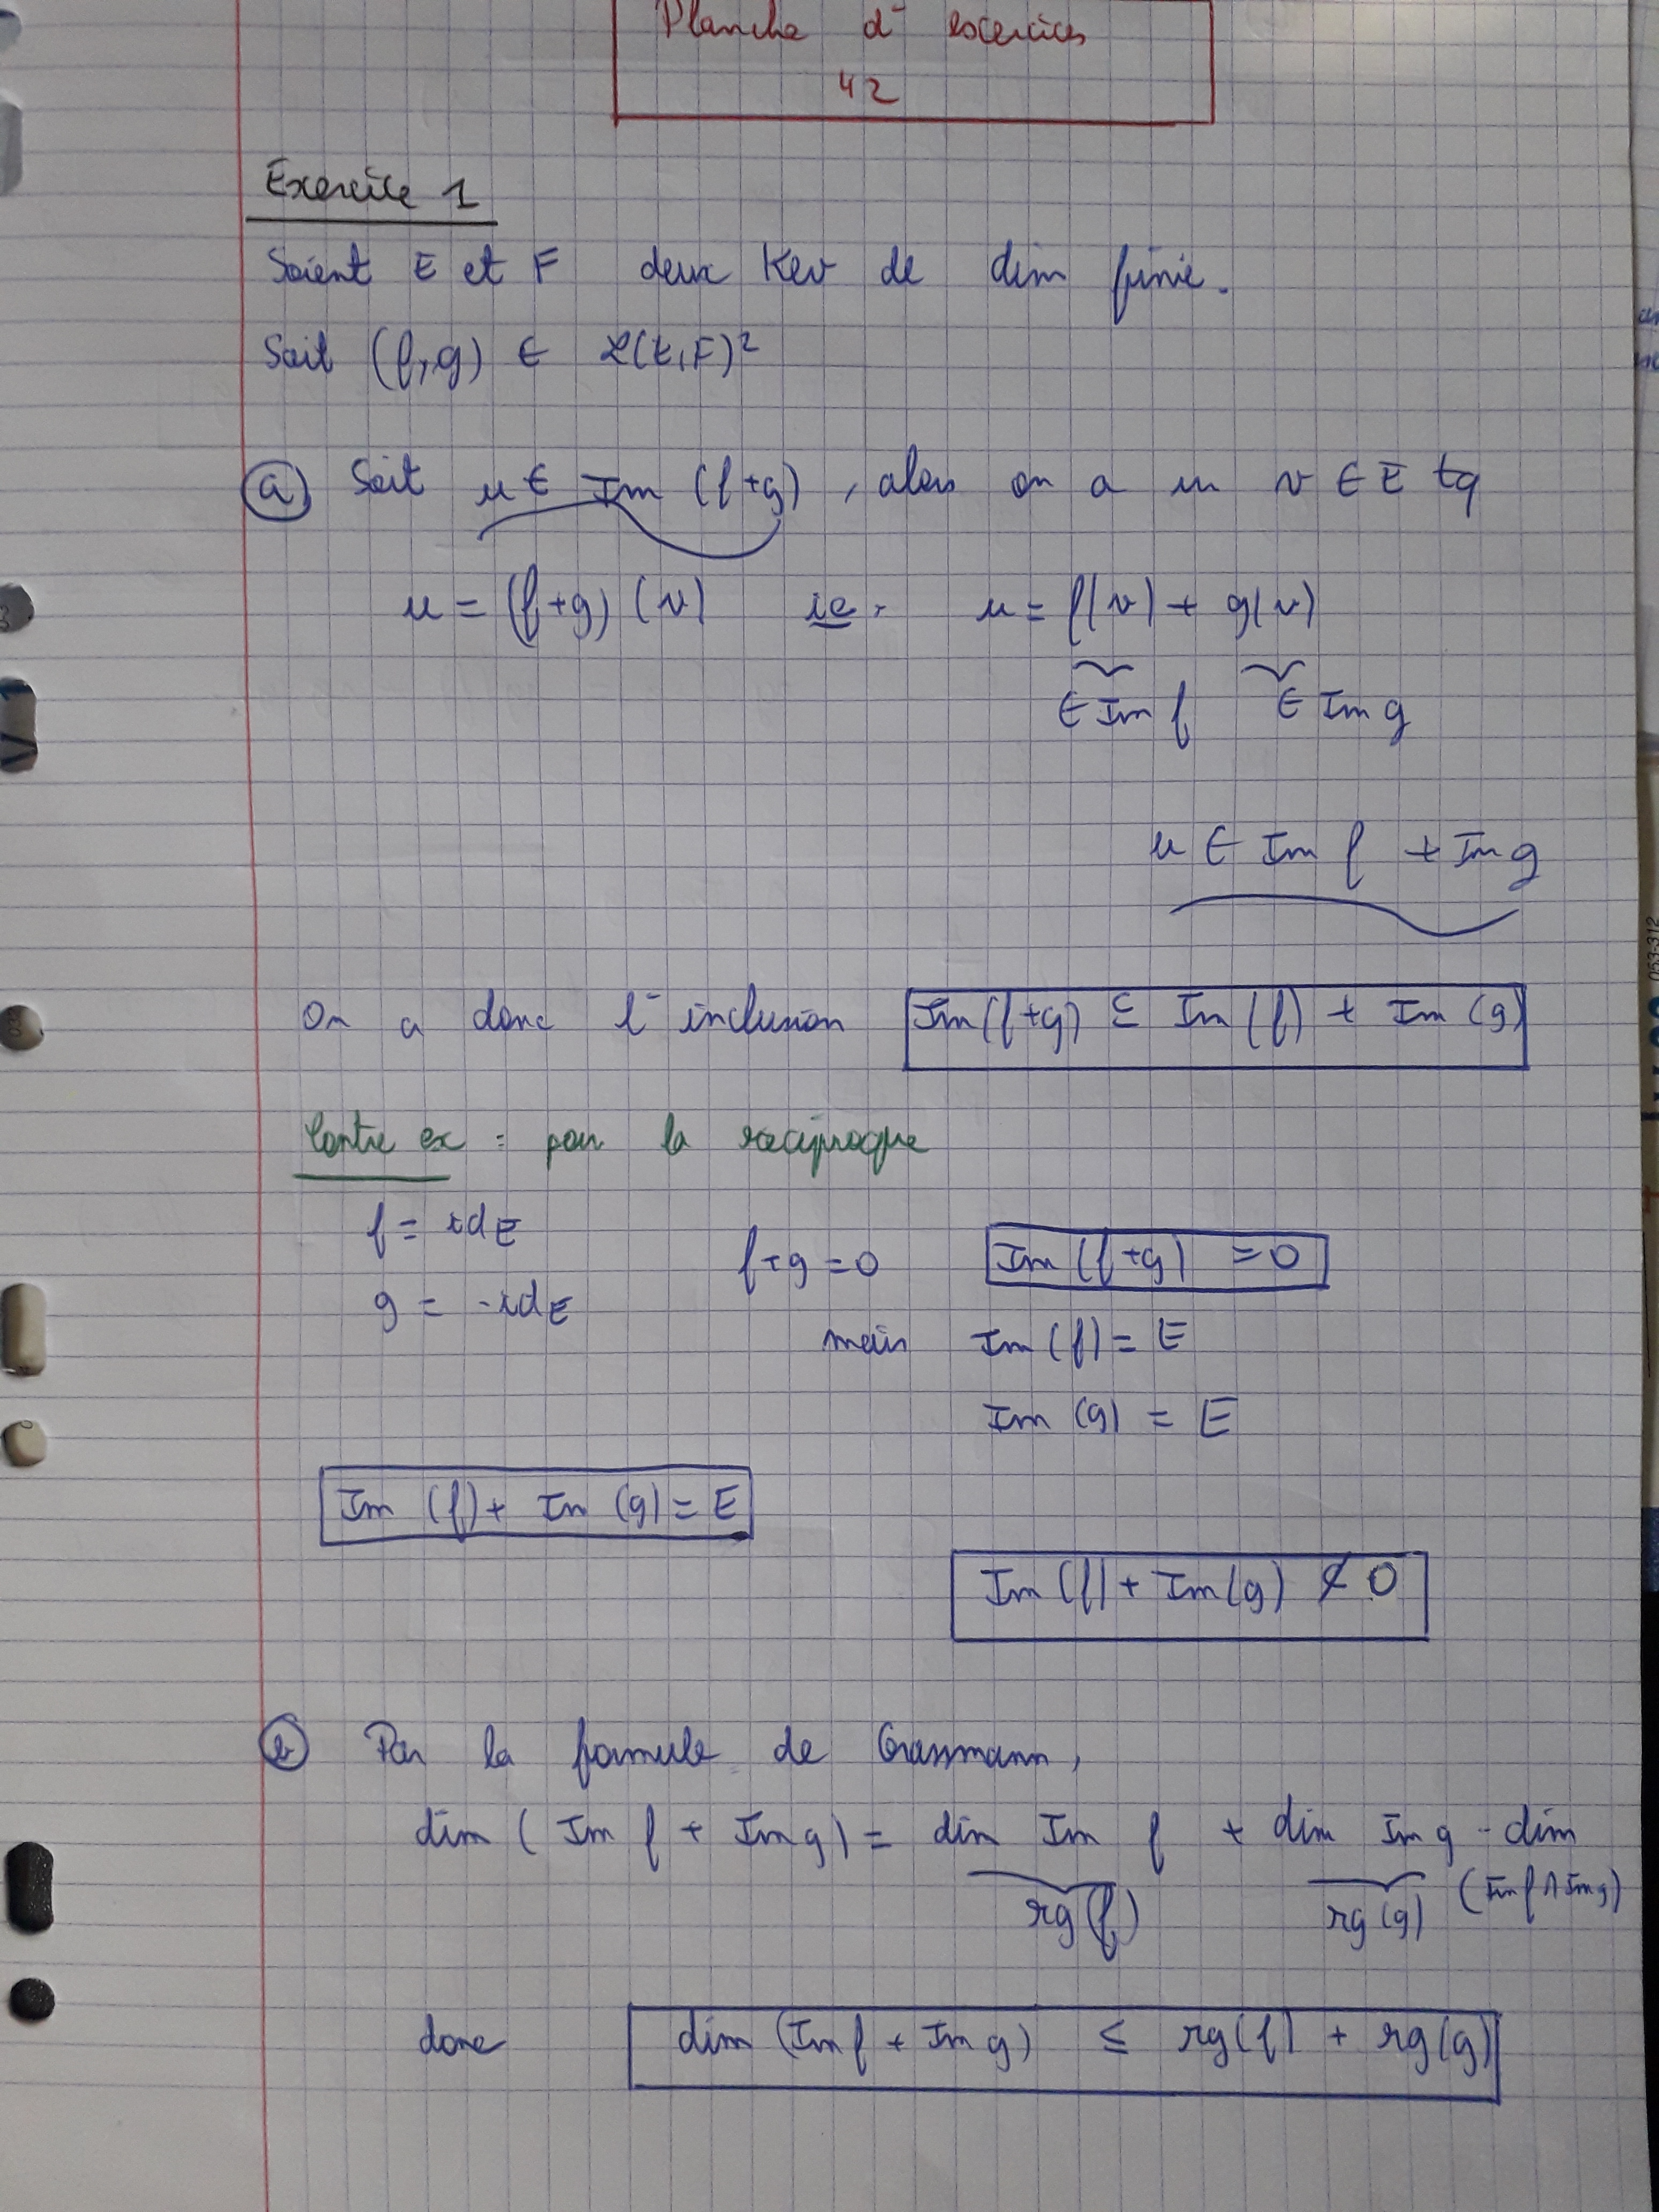 Planche d'exercices
42
Exercice 1
Soient E et F deux Kev de dim finie.
Soit (f,g) ∈ L(E,F)²
a) Soit u ∈ Im (f+g), alors on a un v ∈ E tq
u = (f+g)(v) ie. u = f(v) + g(v)
∈ Im f ∈ Im g
u ∈ Im f + Im g
On a donc l'inclusion Im(f+g) ⊆ Im(f) + Im(g)
Contre ex : pour la réciproque
f = idE
g = -idE
f+g = 0 Im(f+g) = 0
mais Im(f) = E
Im(g) = E
Im(f) + Im(g) = E
Im(f) + Im(g) ⊄ 0
b) Par la formule de Grassmann,
dim(Im f + Im g) = dim Im f + dim Im g - dim
(Im f ∩ Im g)
rg(f) rg(g)
donc dim(Im f + Im g) ≤ rg(f) + rg(g)
053-312